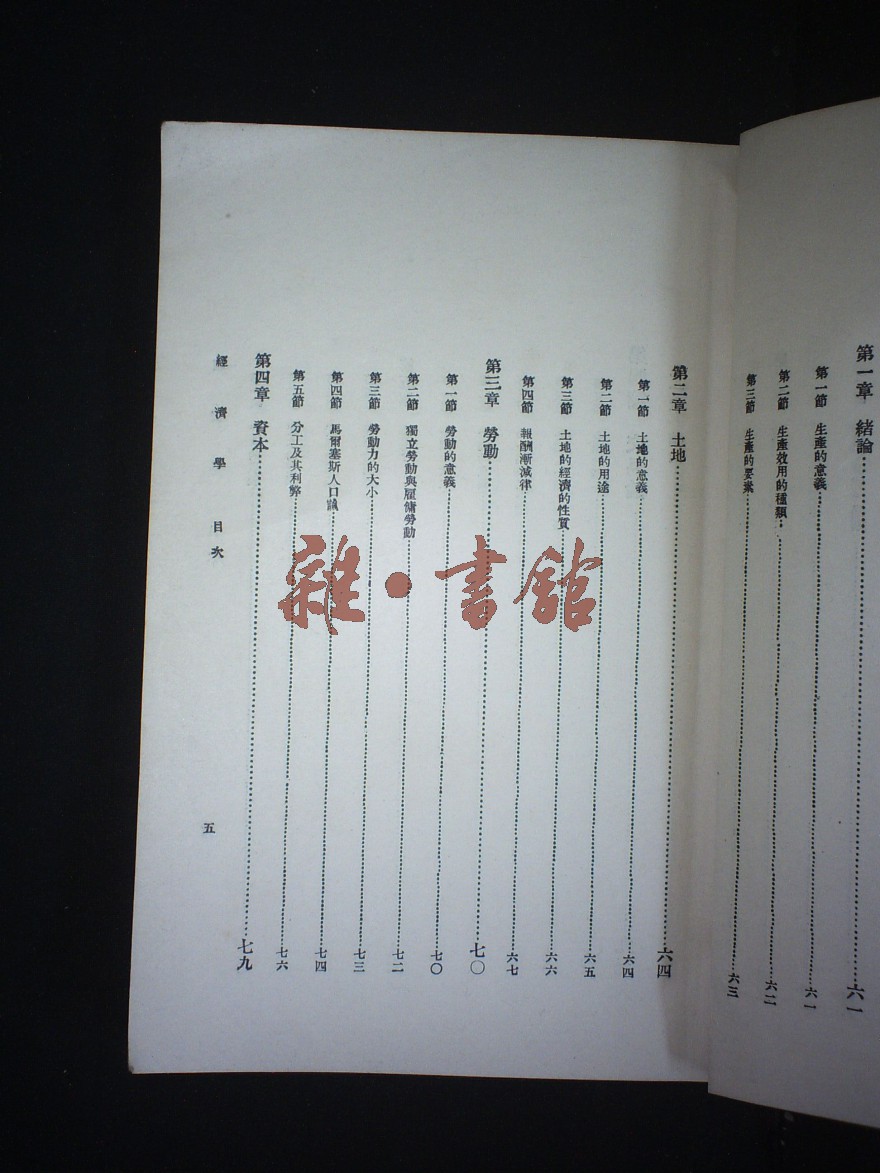 第一章 緒論……六一
第一節 生產的意義……六一
第二節 生產效用的種類……六二
第三節 生產的要素……六三
第二章 土地……六四
第一節 土地的意義……六四
第二節 土地的用途……六五
第三節 土地的經濟的性質……六六
第四節 報酬漸減律……六七
第三章 勞動……七〇
第一節 勞動的意義……七〇
第二節 獨立勞動與雇傭勞動……七二
第三節 勞動力的大小……七三
第四節 馬爾塞斯人口論……七四
第五節 分工及其利弊……七六
第四章 資本……七九
經濟學 目次
五
雜·書館